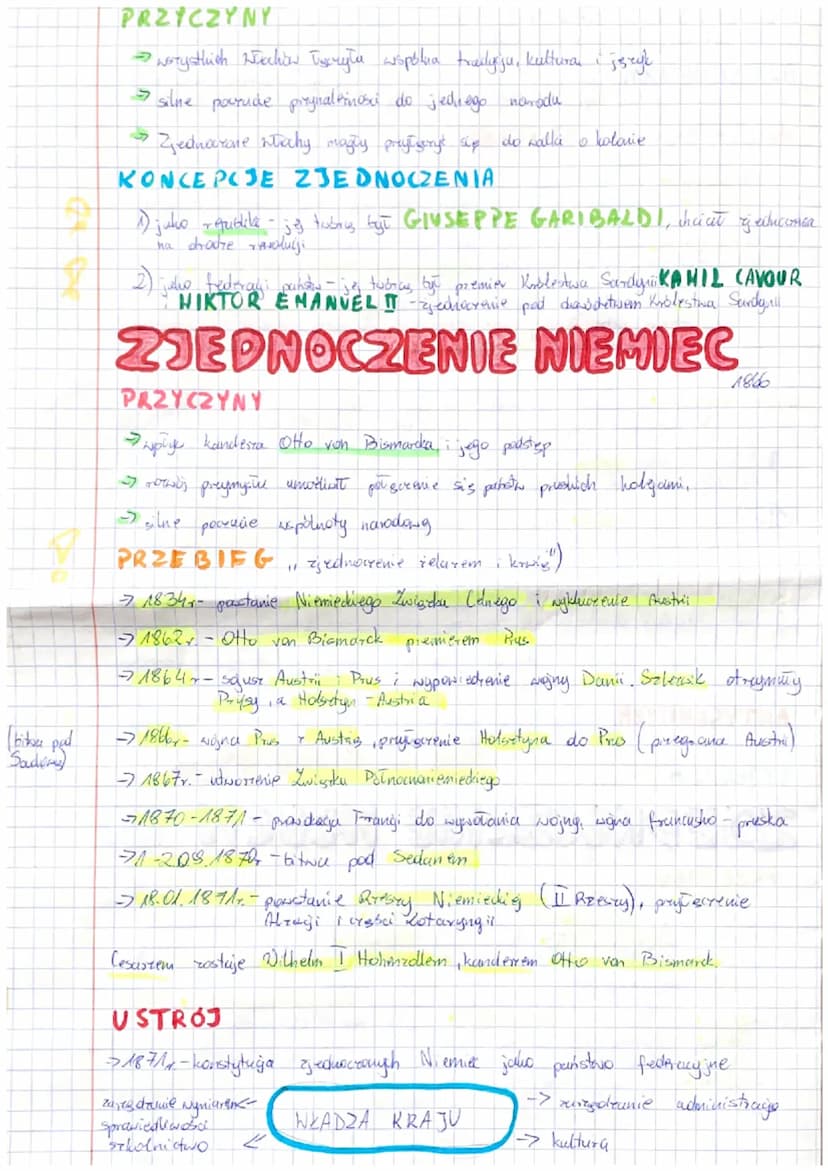 PRZYCZYNY
→ wszystkich Włochów łączyła wspólna tradycja, kultura i język
→ silne poczucie przynależności do jednego narodu
→ Zjednoczone Włochy mogły przyłączyć się do walki o kolonie
KONCEPCJE ZJEDNOCZENIA
1) jako republika - jej twórcą był GIUSEPPE GARIBALDI, chciał zjednoczenia
na drodze rewolucji
2) jako federacji państw - jej twórcą był premier Królestwa Sardynii KAMIL CAVOUR
i WIKTOR EMANUEL II - zjednoczenie pod dowództwem Królestwa Sardynii
ZJEDNOCZENIE NIEMIEC
1866
PRZYCZYNY
→ wpływ kanclerza Otto von Bismarcka i jego podstęp
→ rozwój przemysłu umożliwił połączenie się państw pruskich kolejami,
→ silne poczucie wspólnoty narodowej
PRZEBIEG „zjednoczenie żelazem i krwią")
→ 1834r - powstanie Niemieckiego Związku Celnego i wykluczenie Austrii
→ 1862r. - Otto von Bismarck premierem Prus
→ 1864r - sojusz Austrii i Prus i wypowiedzenie wojny Danii. Szlezwik otrzymały
Prusy, a Holsztyn - Austria
(bitwa pod
Sadową)
→ 1866r - wojna Prus z Austrią, przyłączenie Holsztyna do Prus (przegrana Austrii)
→ 1867r. - utworzenie Związku Północnoniemieckiego
→ 1870-1871 - prowokacja Francji do wywołania wojny, wojna francusko-pruska
→ 1-2.09.1870r - bitwa pod Sedanem
→ 18.01.1871r. - powstanie Rzeszy Niemieckiej (II Rzeszy), przyłączenie
Alzacji i części Lotaryngii
Cesarzem zostaje Wilhelm I Hohenzollern, kanclerzem Otto von Bismarck.
USTRÓJ
→ 1871r - konstytucja zjednoczonych Niemiec jako państwo federacyjne
zarządzanie wymiarem ←
sprawiedliwości
szkolnictwo ↙
WŁADZA KRAJU
→ zarządzanie administracją
→ kulturą